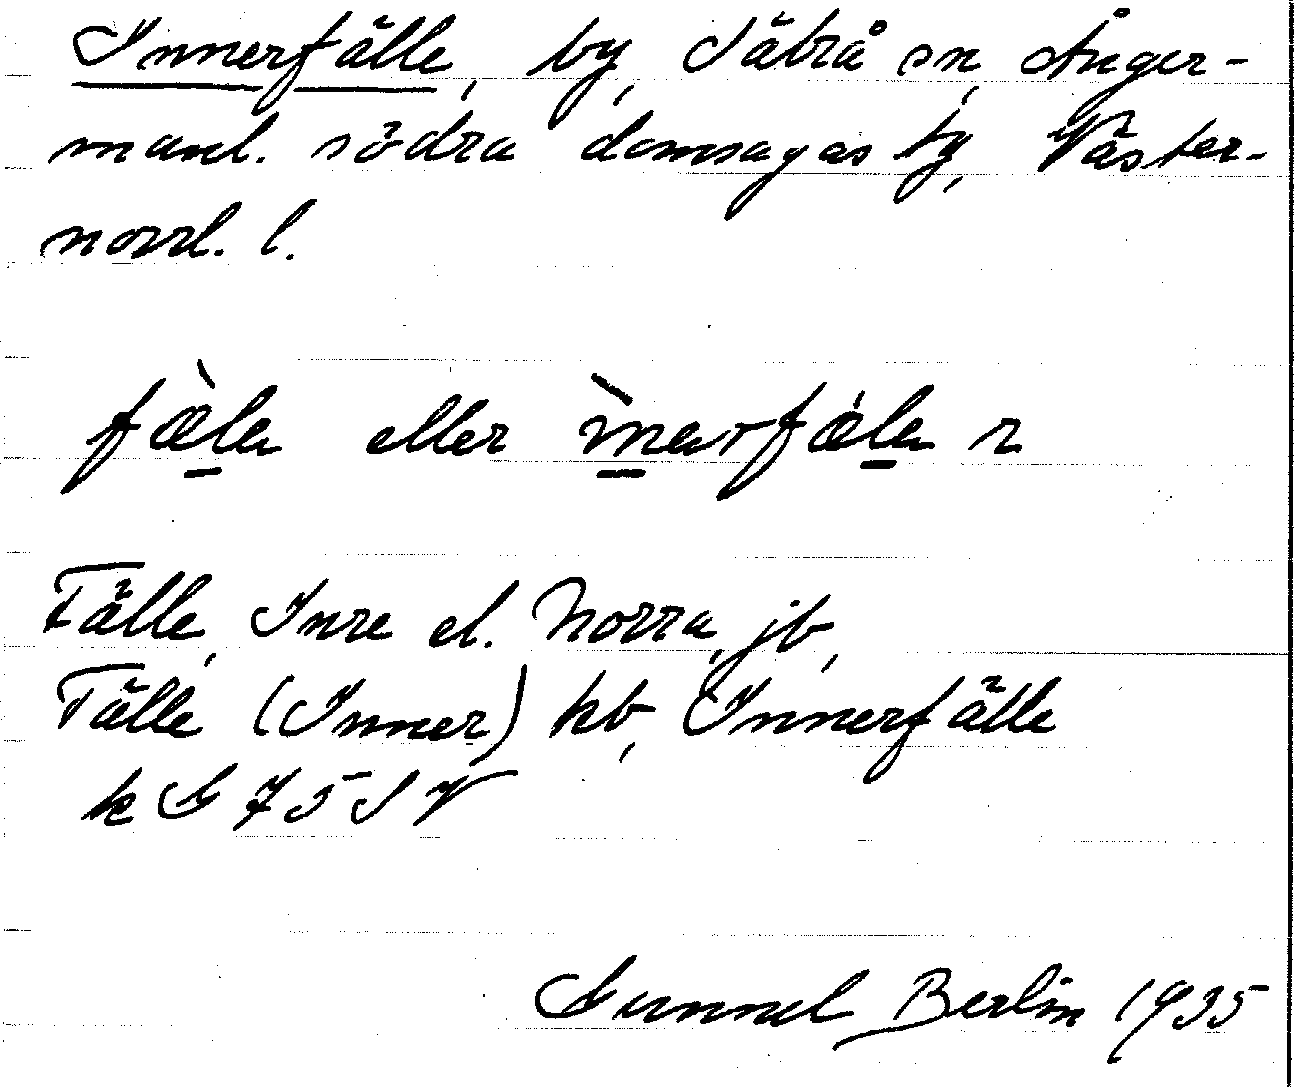 Innerfälle, by, Säbrå sn, Ånger-
manl. södra domsagas tg, Väster-
norrl. l.
fæ̀la eller ìnarfǽla r
Fälle, Inre el. Norra, jb,
Fälle (Inner) kb, Innerfälle
k G 75 S V
Gunnel Berlin 1935